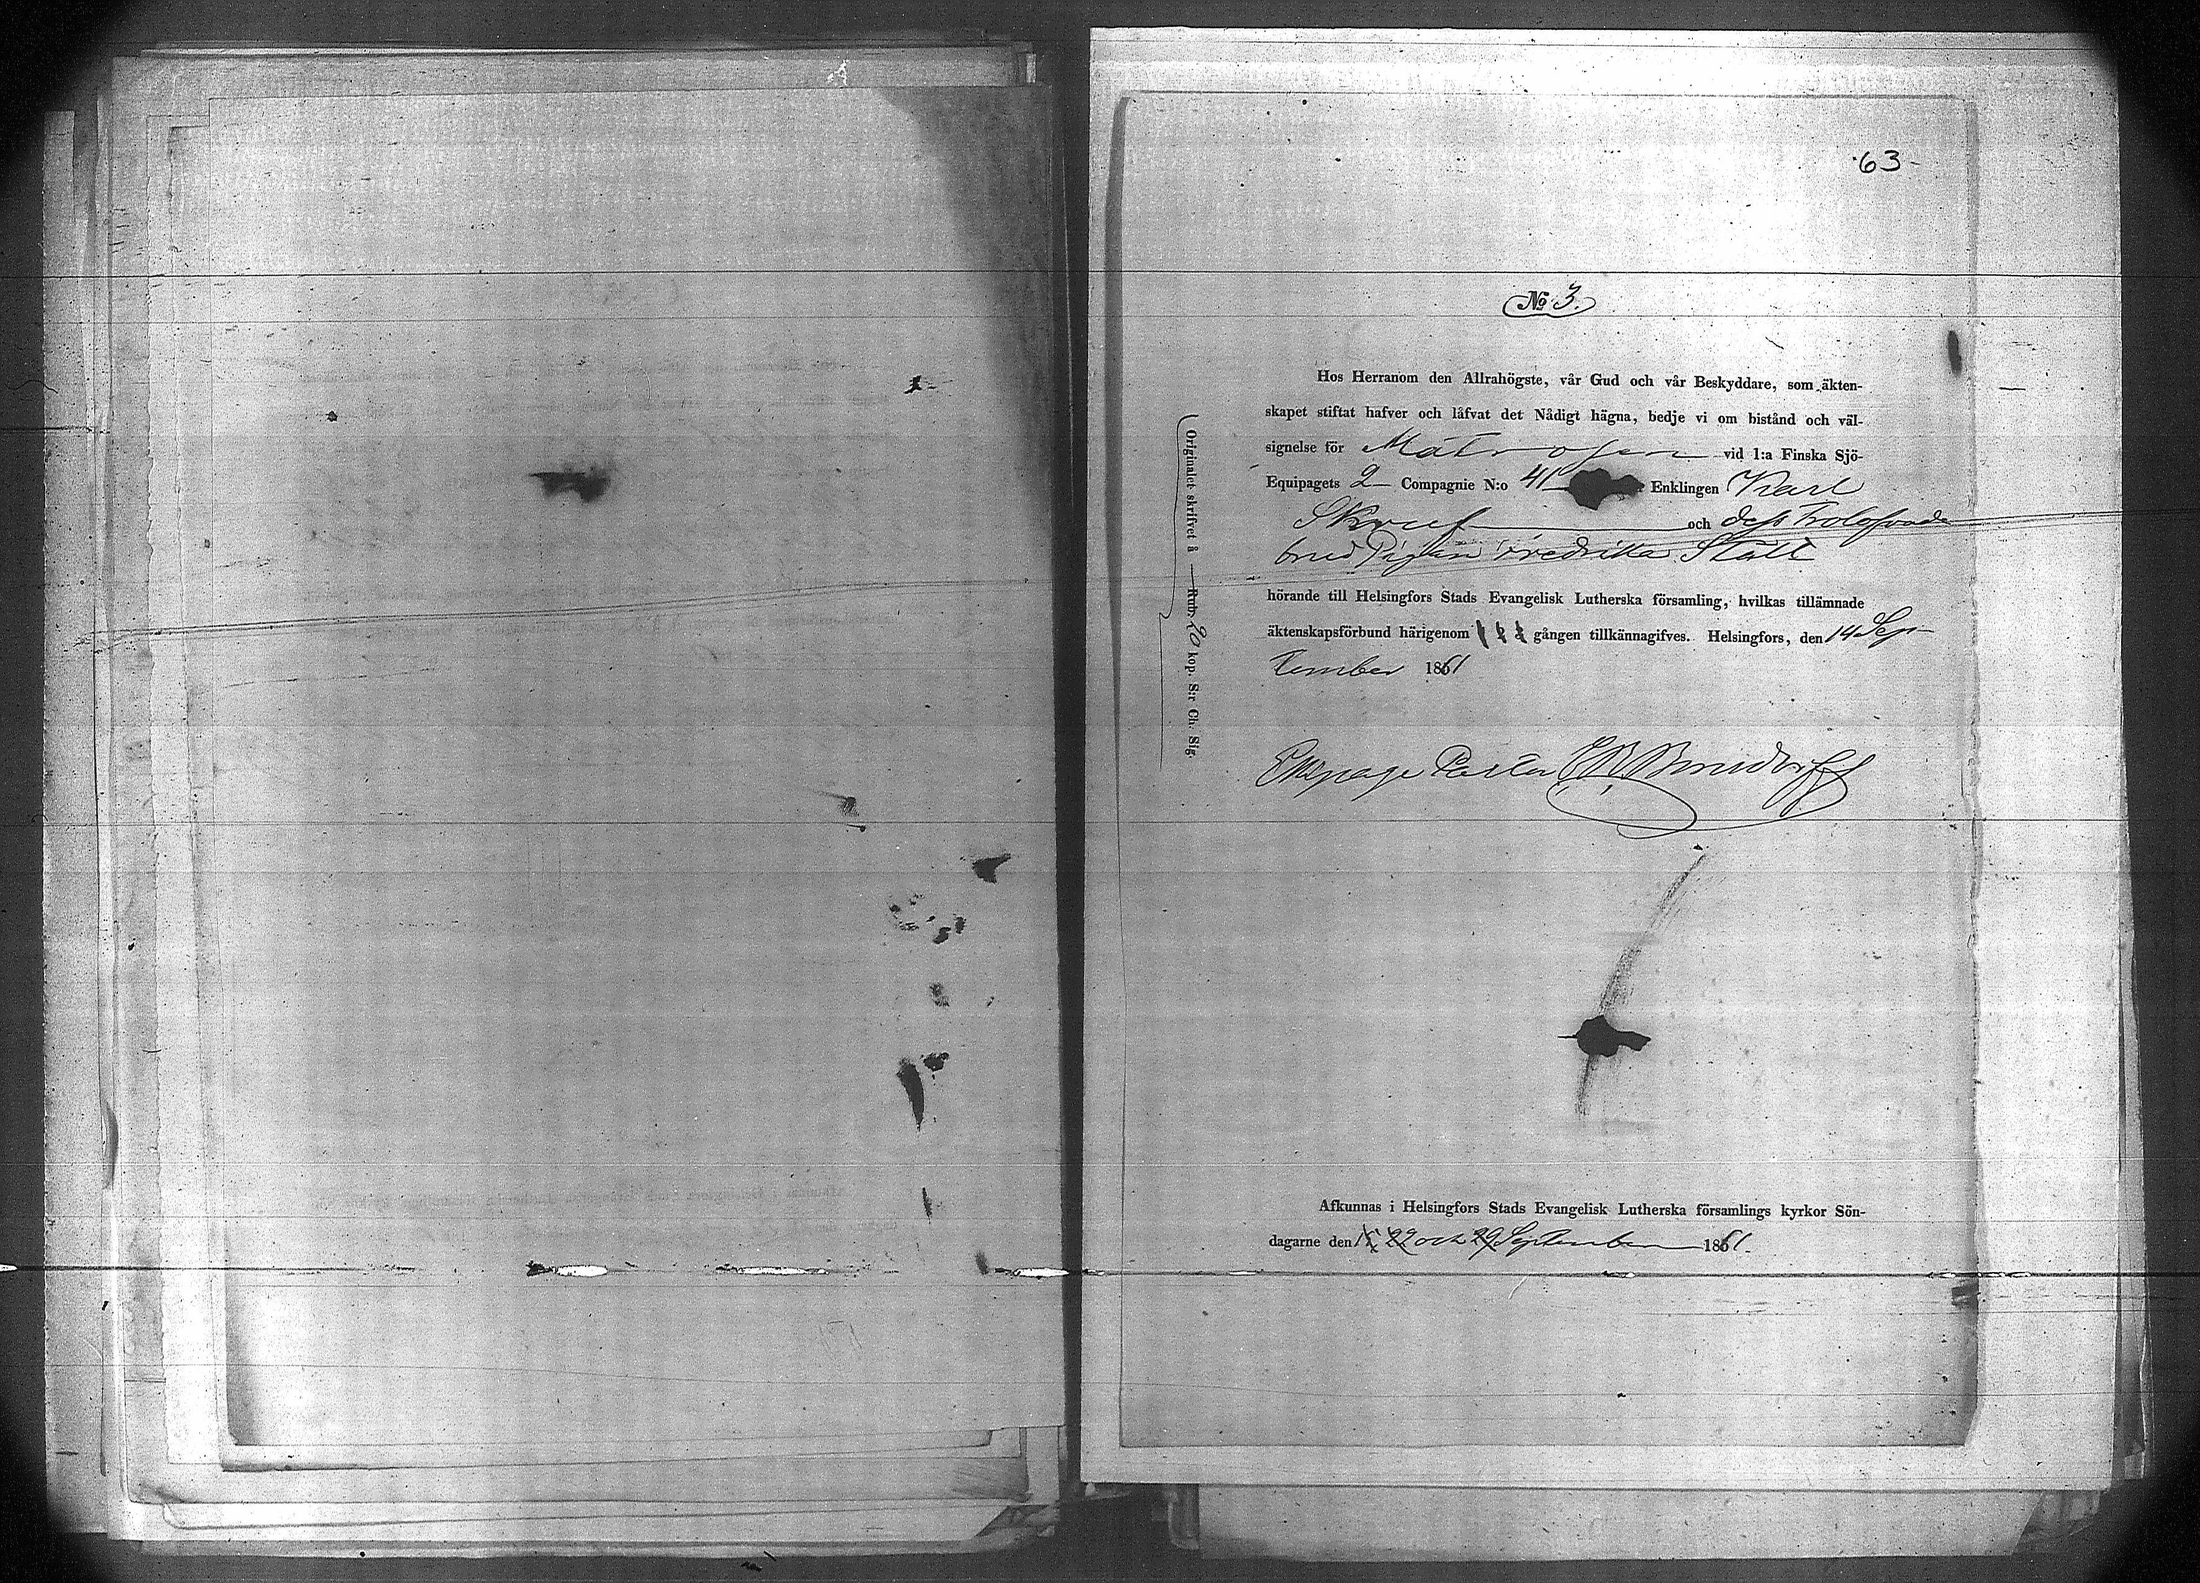 63
No 3.
Hos Herranom den Allrahögste, vår Gud och vår Beskyddare, som äkten-
skapet stiftat hafver och låfvat det Nådigt hägna, bedje vi om bistånd och väl-
signelse för Matrosen vid 1:a Finska Sjö-
Equipagets 2 Compagnie N:o 41 Enklingen Karl
Skruf och dess trolofvade
brud Pigan Fredrika Ståll
hörande till Helsingfors Stads Evangelisk Lutherska församling, hvilkas tillämnade
äktenskapsförbund härigenom 1 2 3 gången tillkännagifves. Helsingfors, den 14 Sep-
tember 1861
Pastor
Afkunnas i Helsingfors Stads Evangelisk Lutherska församlings kyrkor Sön-
dagarne den 15, 22 och 29 September 1861.
Originalet skrifvet å — Rub. 20 kop. S:r Ch. Sig.